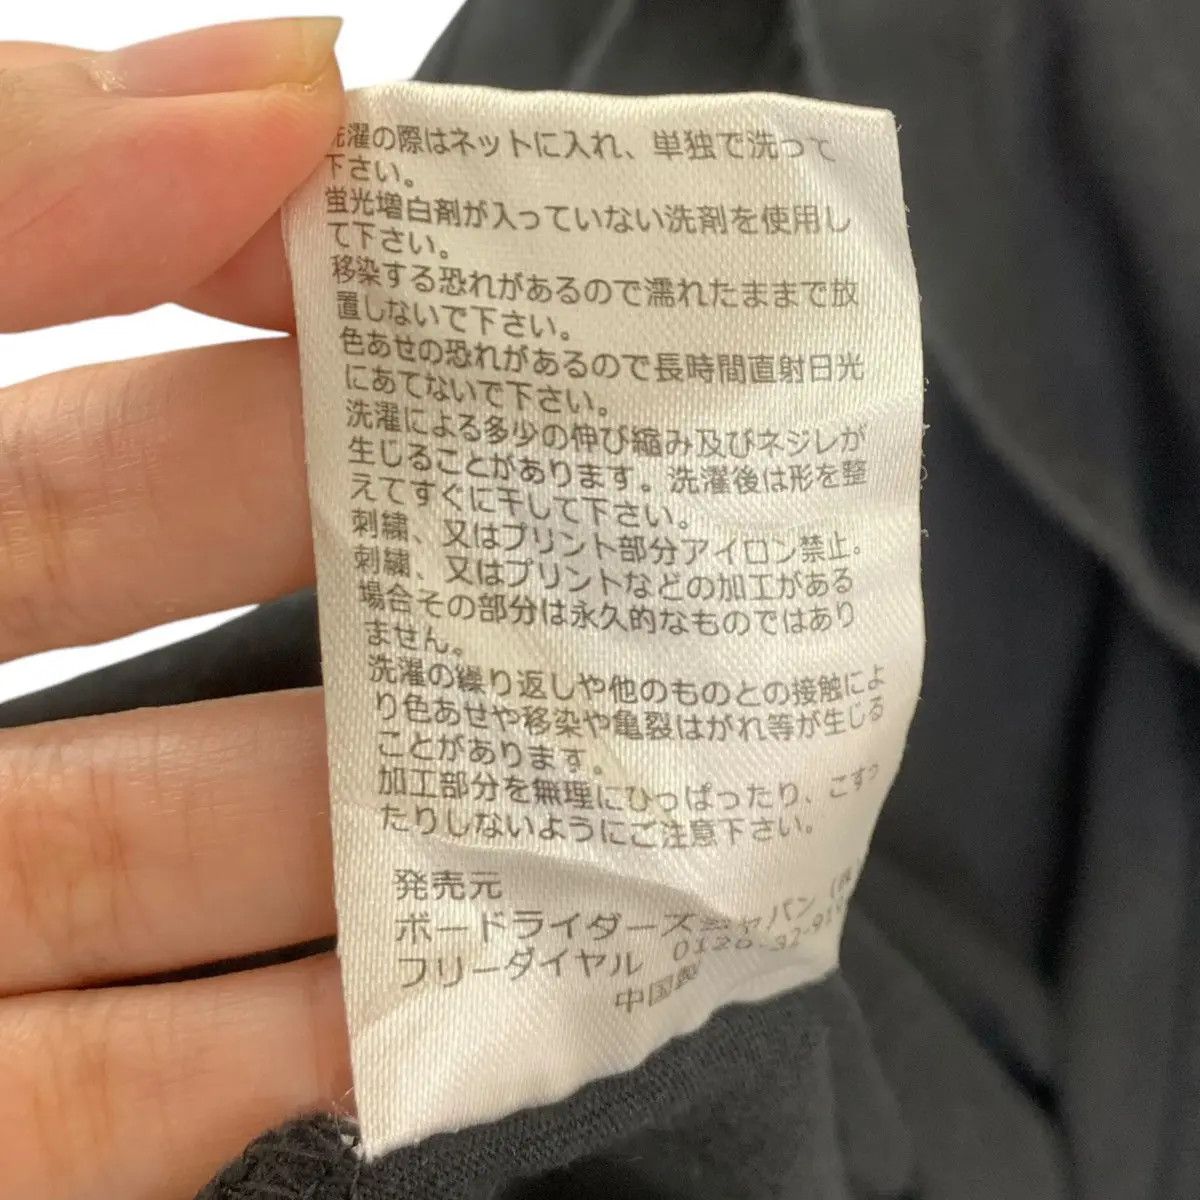 洗濯の際はネットに入れ、単独で洗って
下さい。
蛍光増白剤が入っていない洗剤を使用し
て下さい。
移染する恐れがあるので濡れたままで放
置しないで下さい。
色あせの恐れがあるので長時間直射日光
にあてないで下さい。
洗濯による多少の伸び縮み及びネジレが
生じることがあります。洗濯後は形を整
えてすぐに干して下さい。
刺繍、又はプリント部分アイロン禁止。
刺繍、又はプリントなどの加工がある
場合その部分は永久的なものではあり
ません。
洗濯の繰り返しや他のものとの接触によ
り色あせや移染や亀裂はがれ等が生じる
ことがあります。
加工部分を無理にひっぱったり、こすっ
たりしないようにご注意下さい。
発売元
ボードライダーズジャパン
フリーダイヤル
中国製